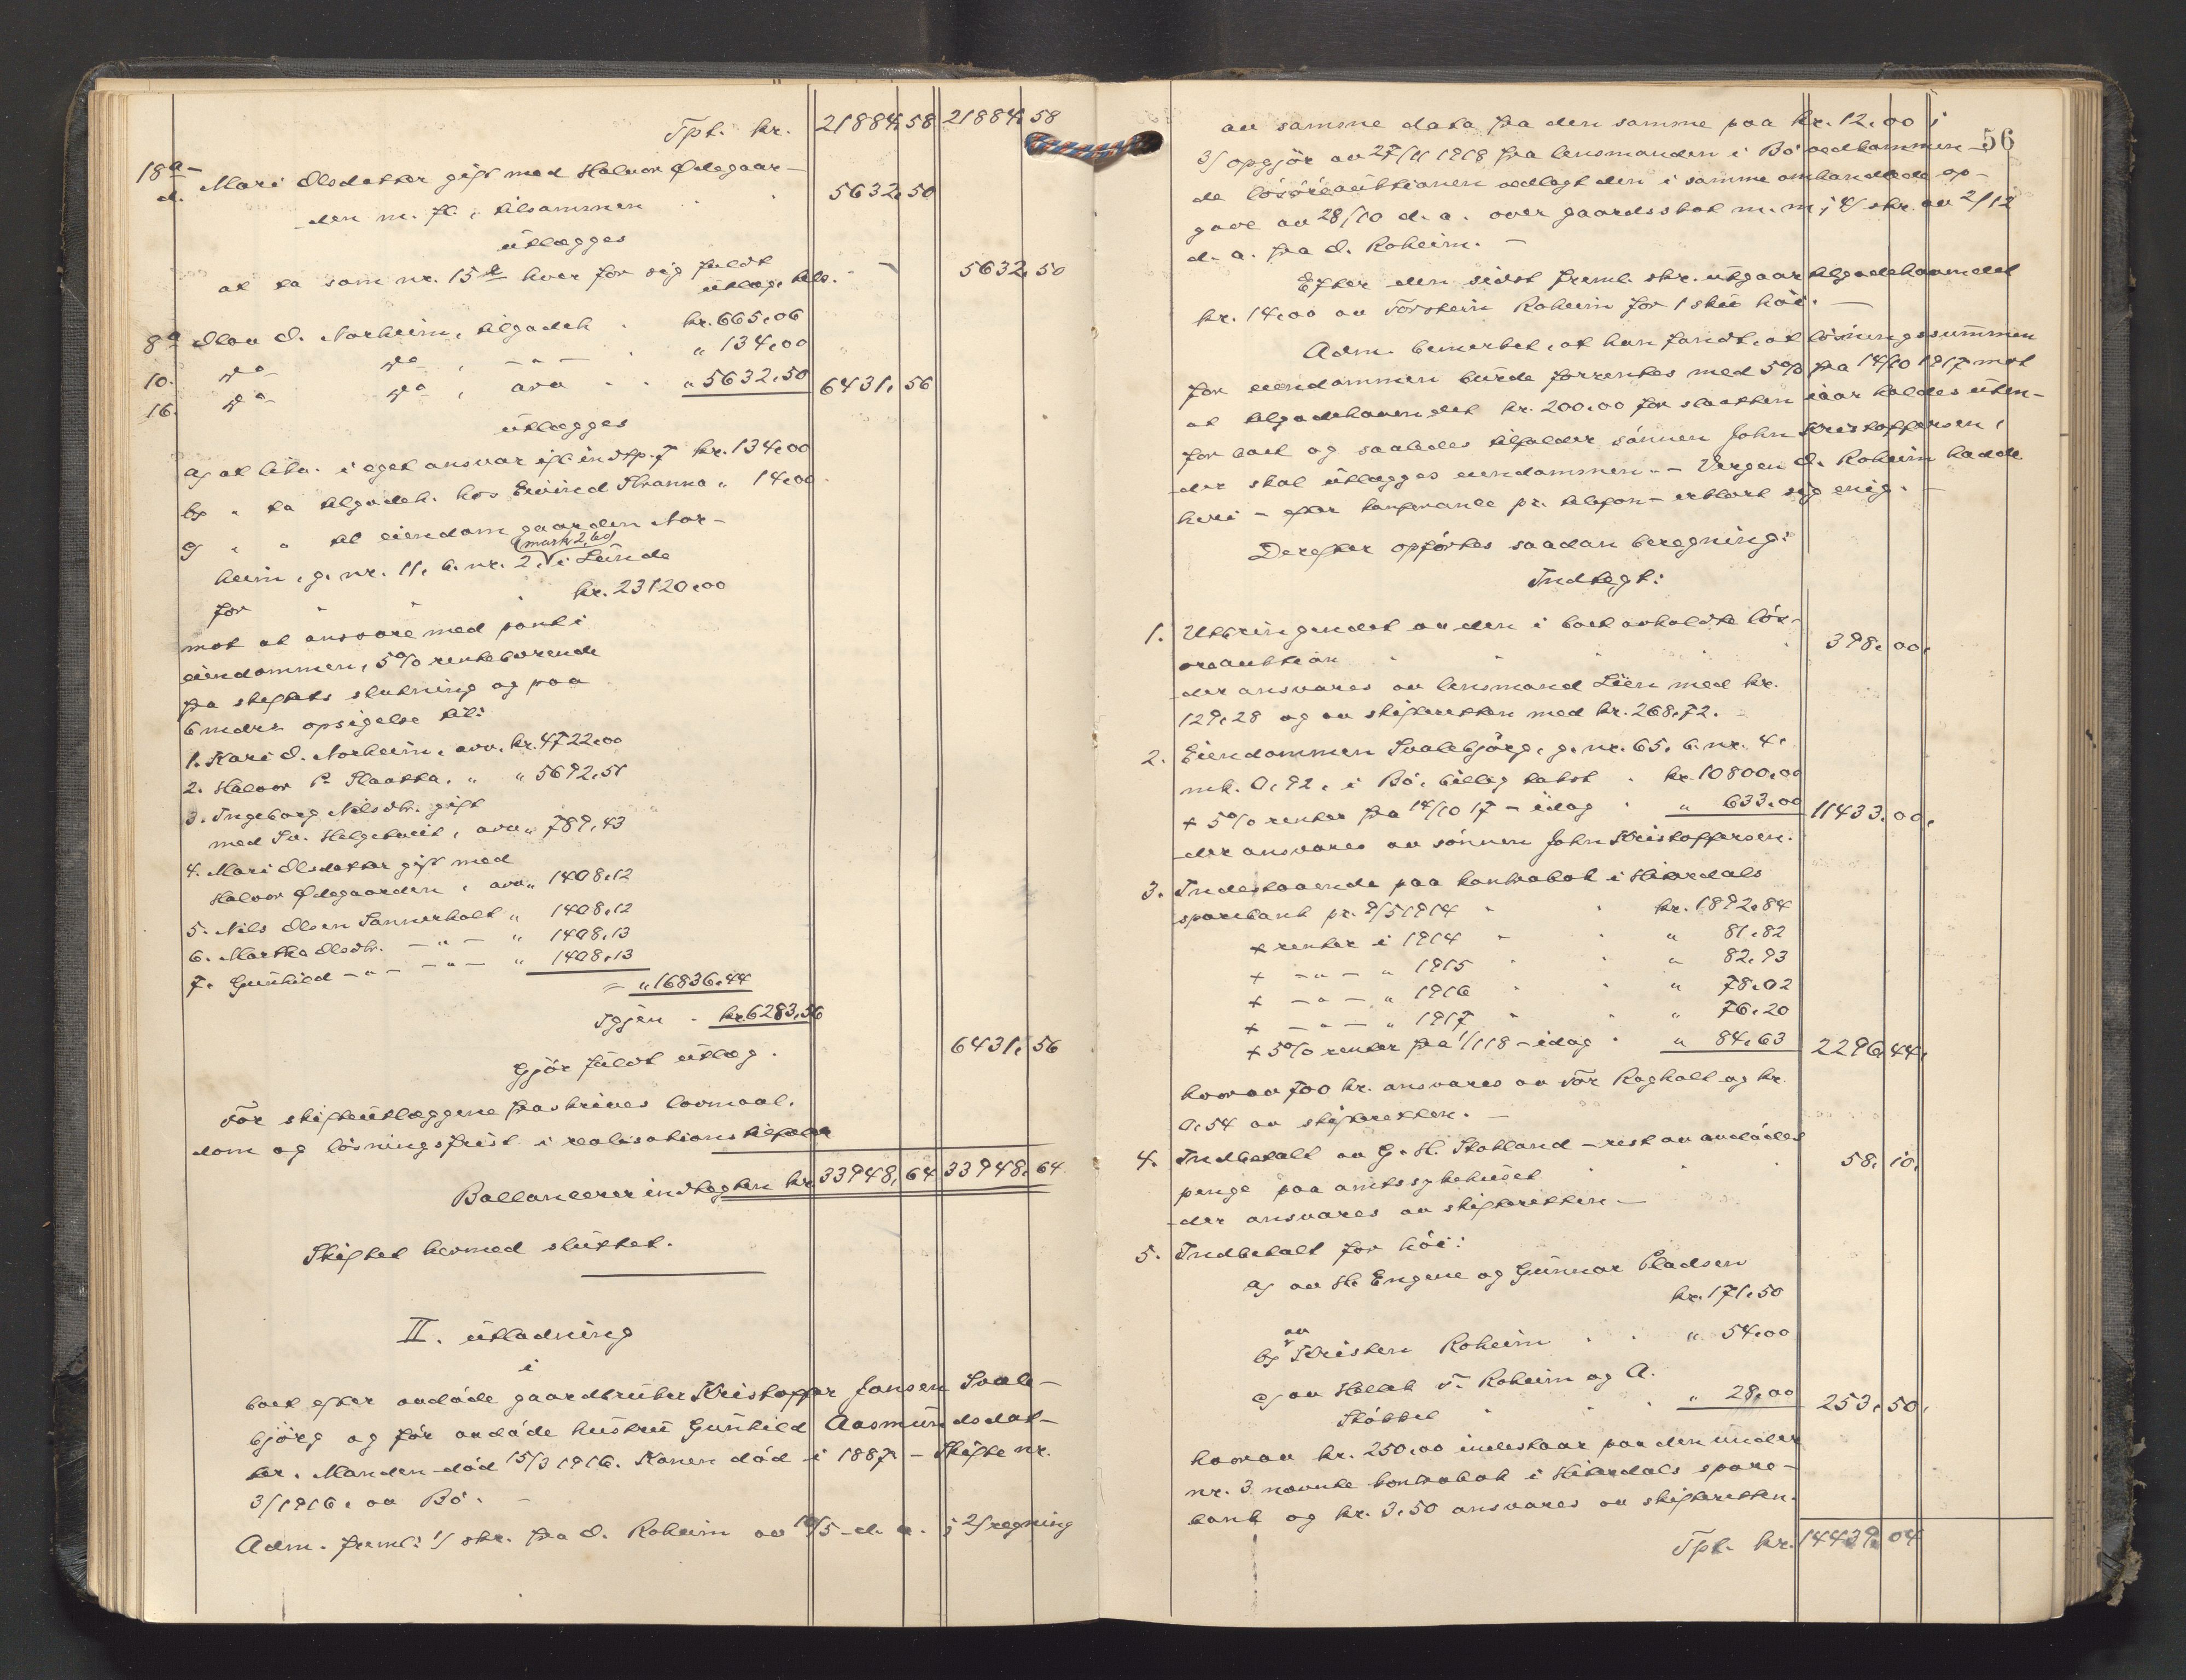 Tpt. kr. 21884,58 21884,58
18 a-d. Mari Olsdatter gift med Halvor Ødegaar-
den m. fl., tilsammen . . 5632,50
utlægges
at ta som nr. 15 hver for sig fuldt
utlæg, tils. - 5632,50
8a Olav O. Norheim, tilgodeh. . kr. 665,06
10. do do , -"- . " 134,00
16. do do , arv . . " 5632,50 6431,56
utlægges
a) at lita i eget ansvar ifl. indtp. 7 kr. 134,00
b) " ta tilgodeh. hos Eivind Skranna " 14,00
c) " " til eiendom gaarden Nor-
(mark 2,60)
heim, g. nr. 11, b. nr. 2, i Lunde
for " " " kr. 23120,00
mot at ansvare med pant i
eiendommen, 5% rentebærende
fra skiftets slutning og paa
6 mdrs opsigelse til:
1. Kari O. Norheim, arv, kr. 4722,00
2. Halvor P. Slaatta, " " 5692,51
3. Ingeborg Nilsdtr. gift
med Sv. Helgetveit, arv " 789,43
4. Mari Olsdatter gift med
Halvor Ødegaarden, arv " 1408,12
5. Nils Olsen Sannerholt " 1408,12
6. Martha Olsdtr. -"- " 1408,13
7. Gunhild -"- -"- " 1408,13
= " 16836,44
Igjen . kr. 6283,56
Gjør fuldt utlæg . 6431,56
Før skifteutlæggene fraskrives lovmaal.
dom og løsningsfrist i realisationstilfælde
Ballancerer indtægten kr. 33948,64 33948,64
Skiftet hermed sluttet.
II. utlodning
i
boet efter avdøde gaardbruker Kristoffer Jonsen Svale-
bjørg og før avdøde hustru Gunhild Aasmundsdat-
ter. Manden død 15/3 1916. Konen død i 1887 - Skifte nr.
3/1916, av Bø. -
Adm. freml: 1/ skr. fra O. Roheim av 10/5 d. a. ; 2/ regning
56
av samme dato fra den samme paa kr. 12,00 ;
3/ opgjør av 27/11 1918 fra lensmanden i Bø vedkommen-
de løsøreauktionen vedlagt den i samme omhandlede op-
gave av 28/10 d. a. over gaardsskat m. m ; 4/ skr. av 2/12
d. a. fra O. Roheim. -
Efter den sidst freml. skr. utgaar tilgodehavendet
kr. 14,00 av Torstein Roheim for 1 sku høi. -
Adm. bemerket, at han fandt, at løsningssummen
for eiendommen burde forrentes med 5% fra 14/10 1917 mot
at tilgodehavendet kr. 200,00 for slaatten iaar holdes uten-
for boet og saaledes tilfalder sønnen John Kristoffersen,
der skal utlægges eiendommen. - Vergen O. Roheim hadde
heri - efter konferance pr. telefon - erklært sig enig. -
Derefter opførtes saadan beregning:
Indtægt:
1. Utbringendet av den i boet avholdte løs-
øreauktion . " " . 398,00,
der ansvares av lensmand Lien med kr.
129,28 og av skifteretten med kr. 268,72. -
2. Eiendommen Svalebjørg, g. nr. 65, b. nr. 4,
mk. 0,92, i Bø, billig takst . kr. 10800,00
+ 5% renter fra 14/10 17 - idag . " 633,00 11433,00,
der ansvares av sønnen John Kristoffersen.
3. Indestaaende paa kontrabok i Hitterdals
sparebank pr. 9/5 1914 " . kr. 1892,84
+ renter i 1914 " . " 81,82
+ -"- " 1915 " . " 82,93
+ -"- " 1916 " . " 78,02
+ -"- " 1917 " " " 76,20
+ 5% renter fra 1/1 18 - idag . " 84,63 2296,44,
hvorav 700 kr. ansvares av Tor Ragholt og kr.
0,54 av skifteretten. -
4. Indbetalt av G. H. Stokland - rest av avdødes
penge paa amtssykehuset " " . 58,10,
der ansvares av skifteretten -
5. Indbetalt for høi:
a) av H. Engene og Gunnar Pladsen
kr. 171,50
b) av Kristen Roheim . . " 54,00
c) av Hellek T. Roheim og A.
Støttel " . . " 28,00 253,50,
hvorav kr. 250,00 indestaar paa den under
nr. 3 nævnte kontrabok i Hitterdals spare-
bank og kr. 3,50 ansvares av skifteretten.
Tpt. kr. 14439,04